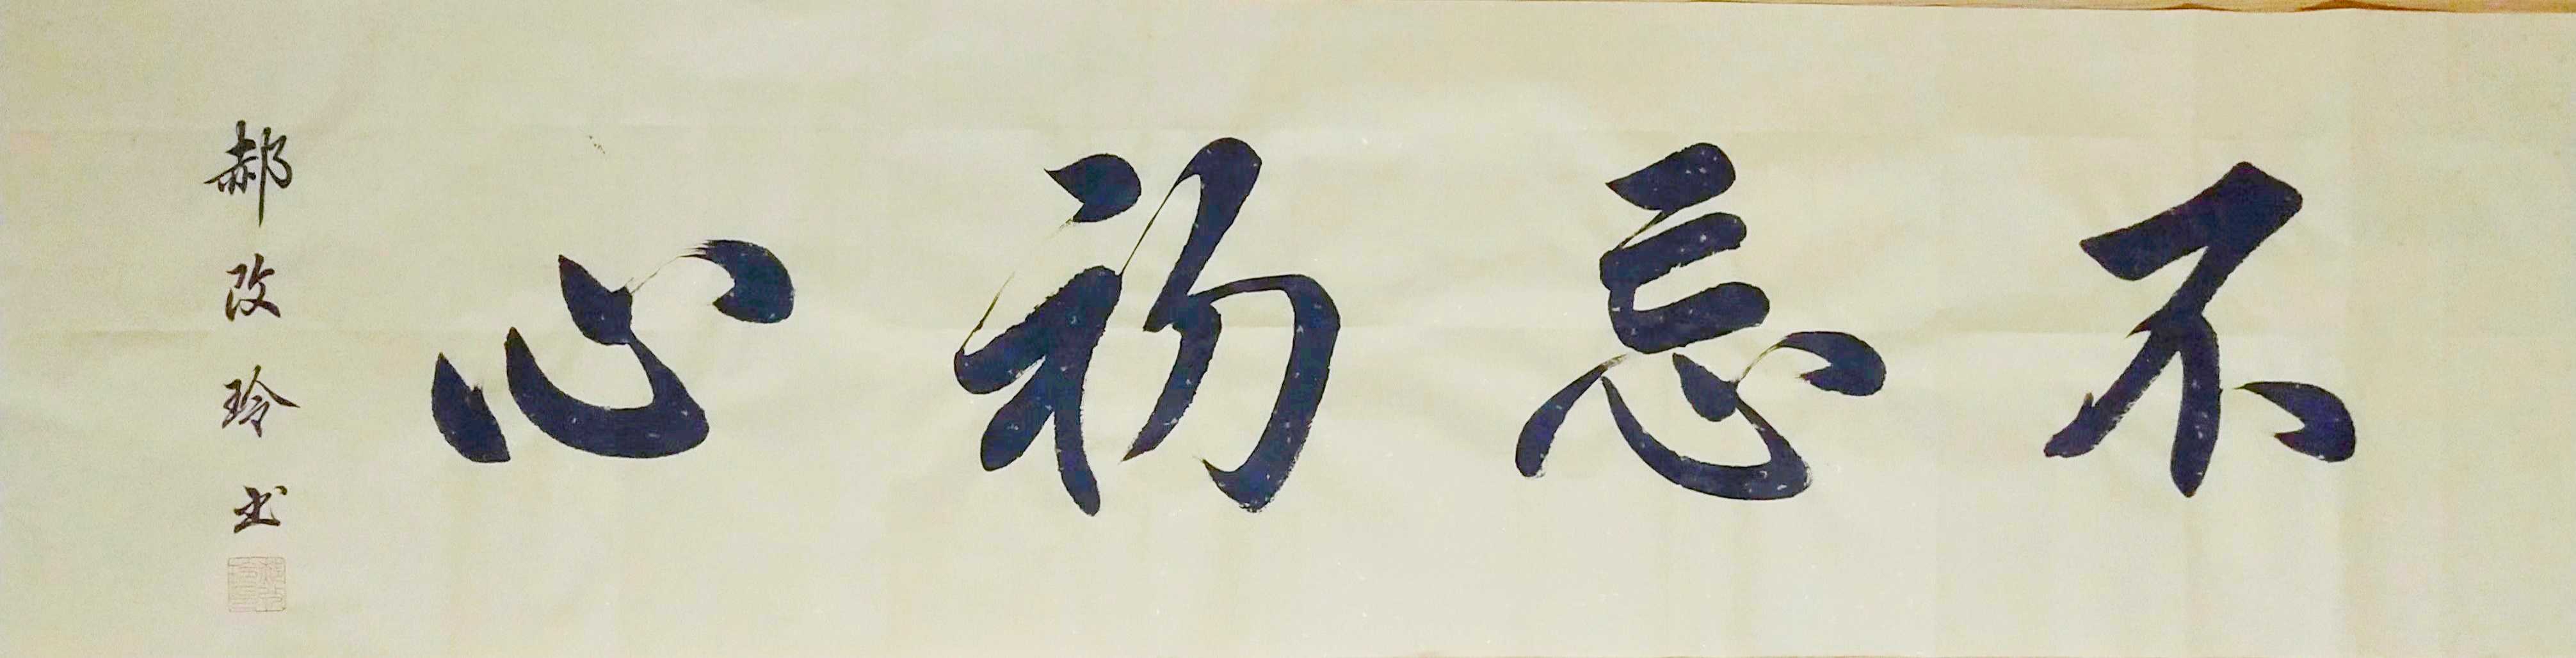 不忘初心
郝改玲书